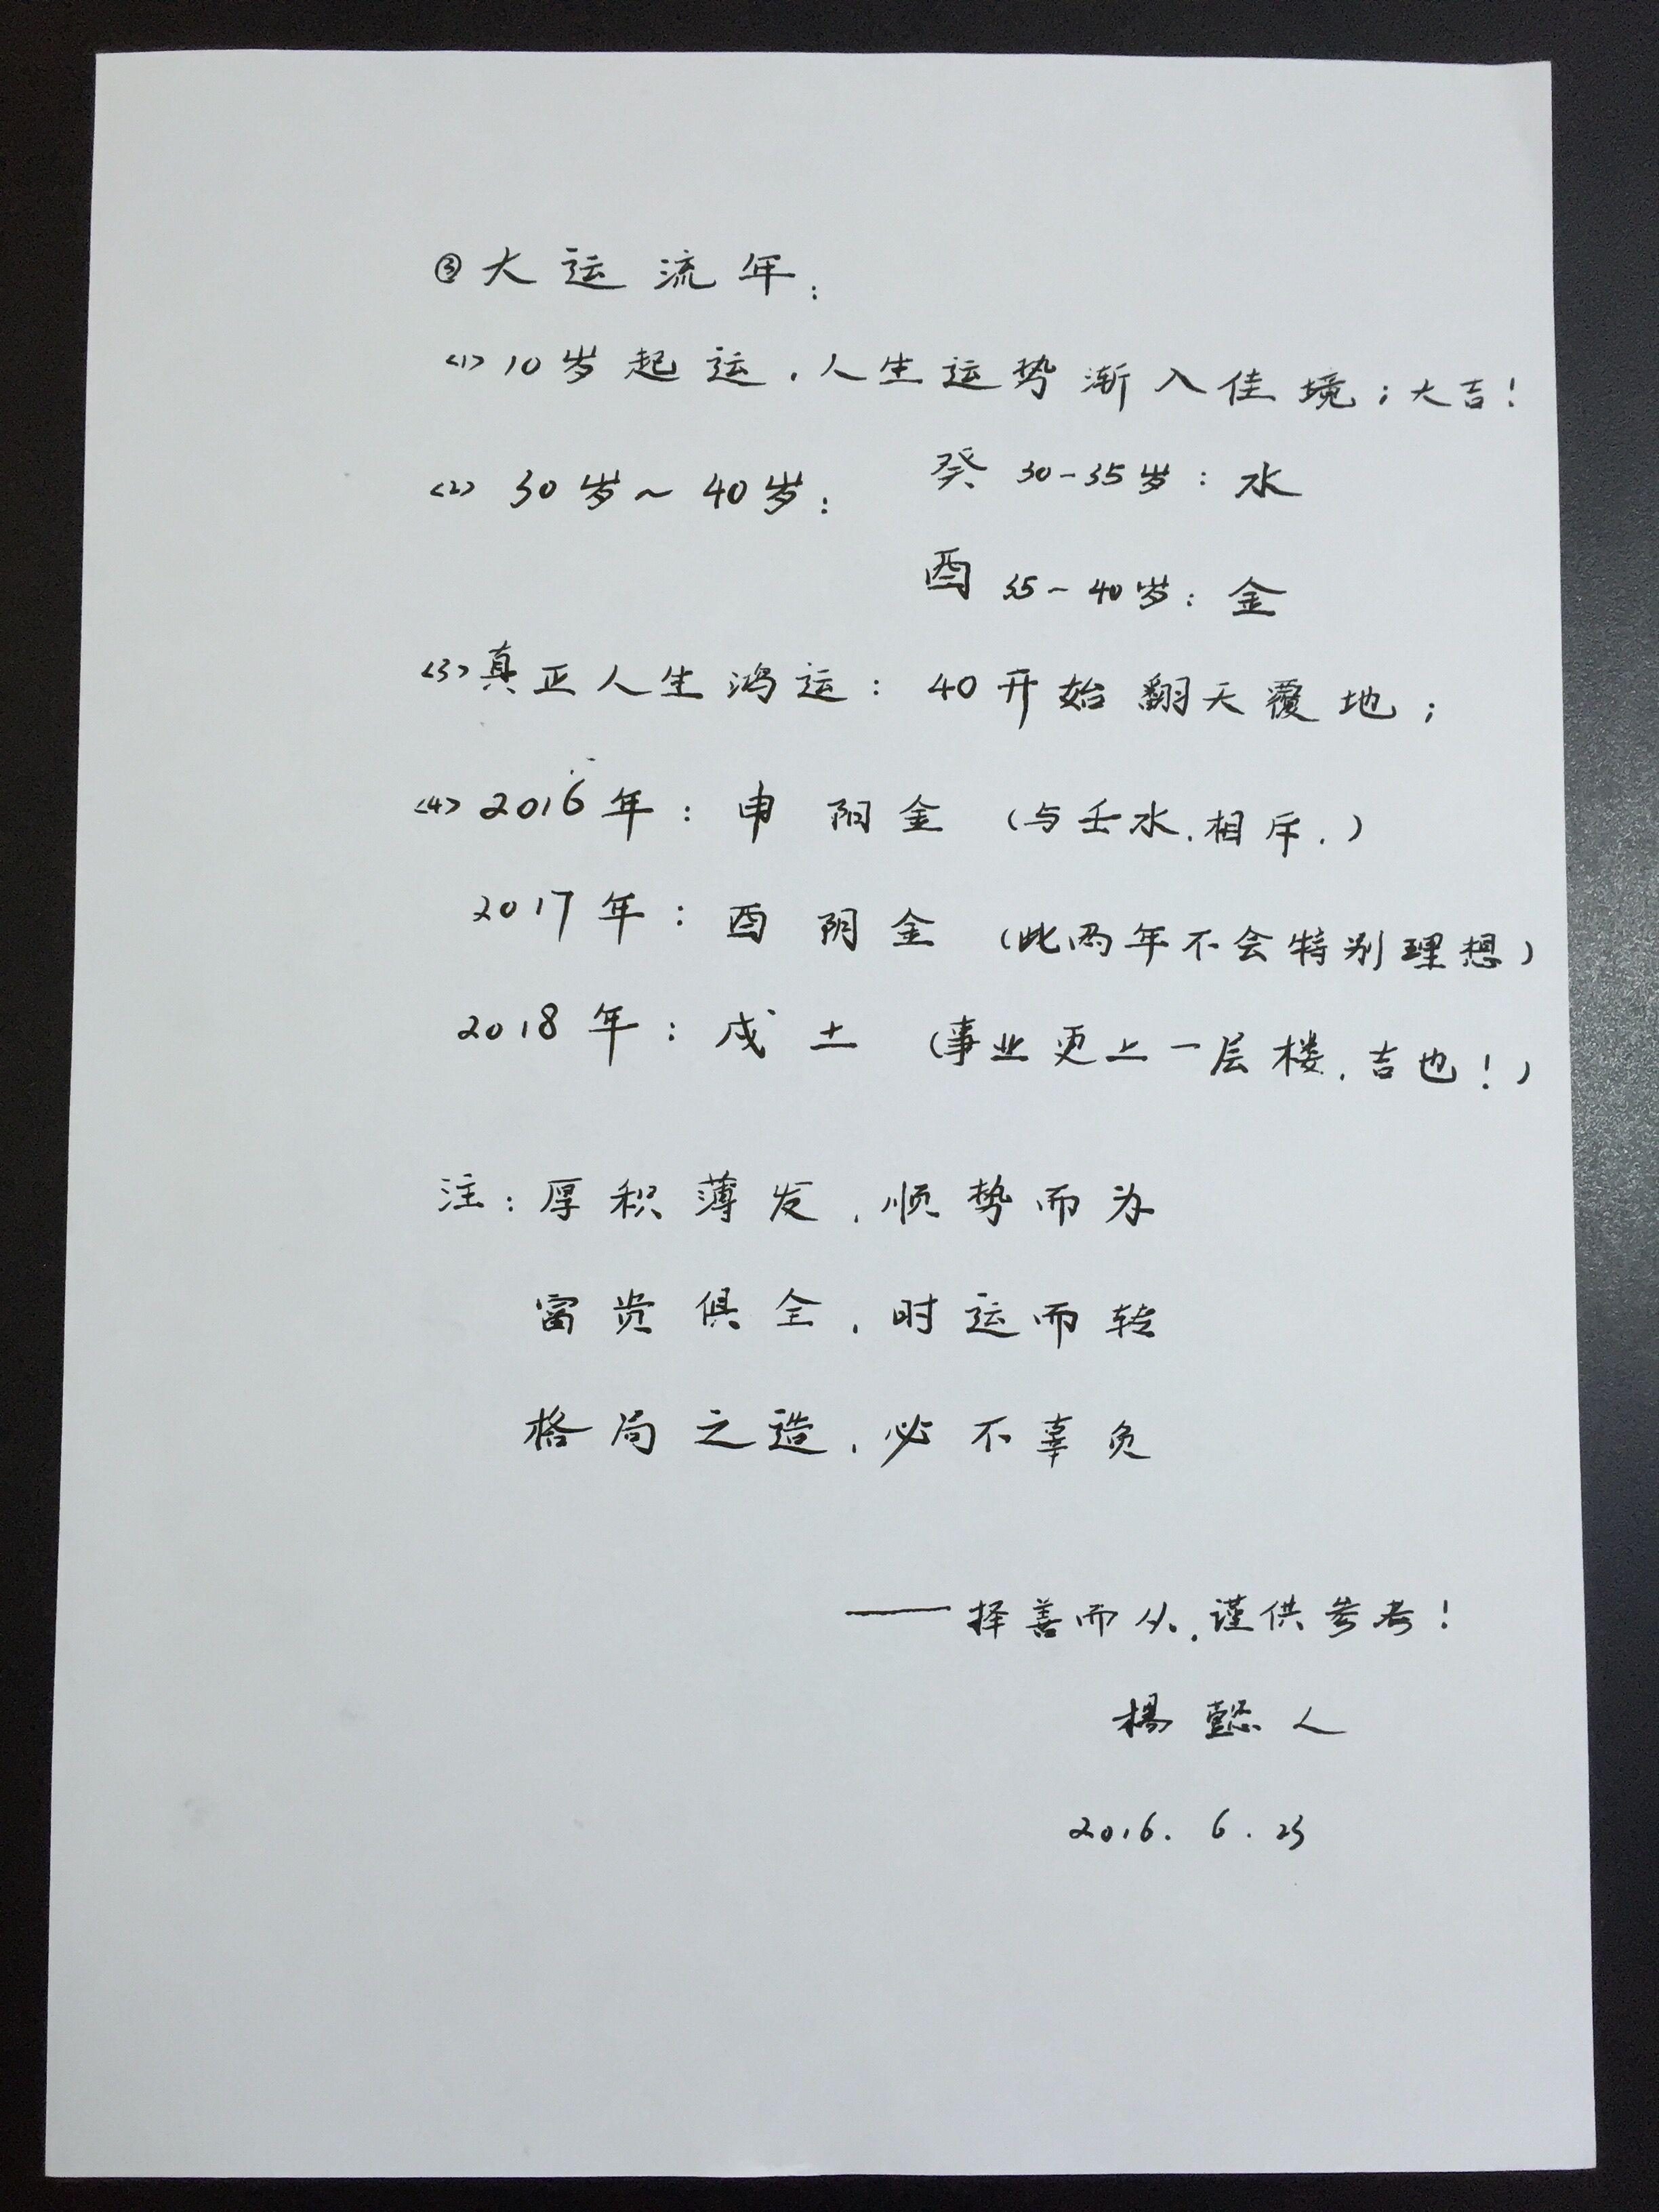 ③大运流年:
<1>10岁起运,人生运势渐入佳境;大吉!
<2> 30岁~40岁: 癸 30-35岁:水
酉 35~40岁:金
<3>真正人生鸿运:40开始翻天覆地;
<4>2016年:申 阳金 (与壬水,相斥.)
2017年:酉 阴金 (此两年不会特别理想)
2018年:戌土 (事业更上一层楼,吉也!)
注:厚积薄发,顺势而为
富贵俱全,时运而转
格局之造,必不辜负
——择善而从,谨供参考!
楊懿人
2016.6.23